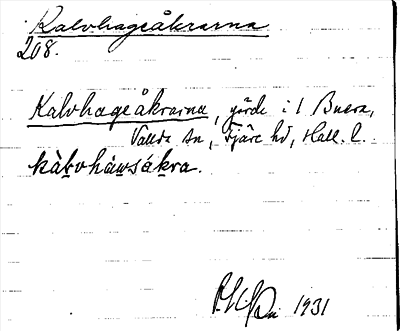 Kalvhageåkrarna
208.
Kalvhageåkrarna, gärde i 1 Buera,
Vallda sn, Fjäre hd, Hall. l.
kàɫvhàwsåkra.
1931